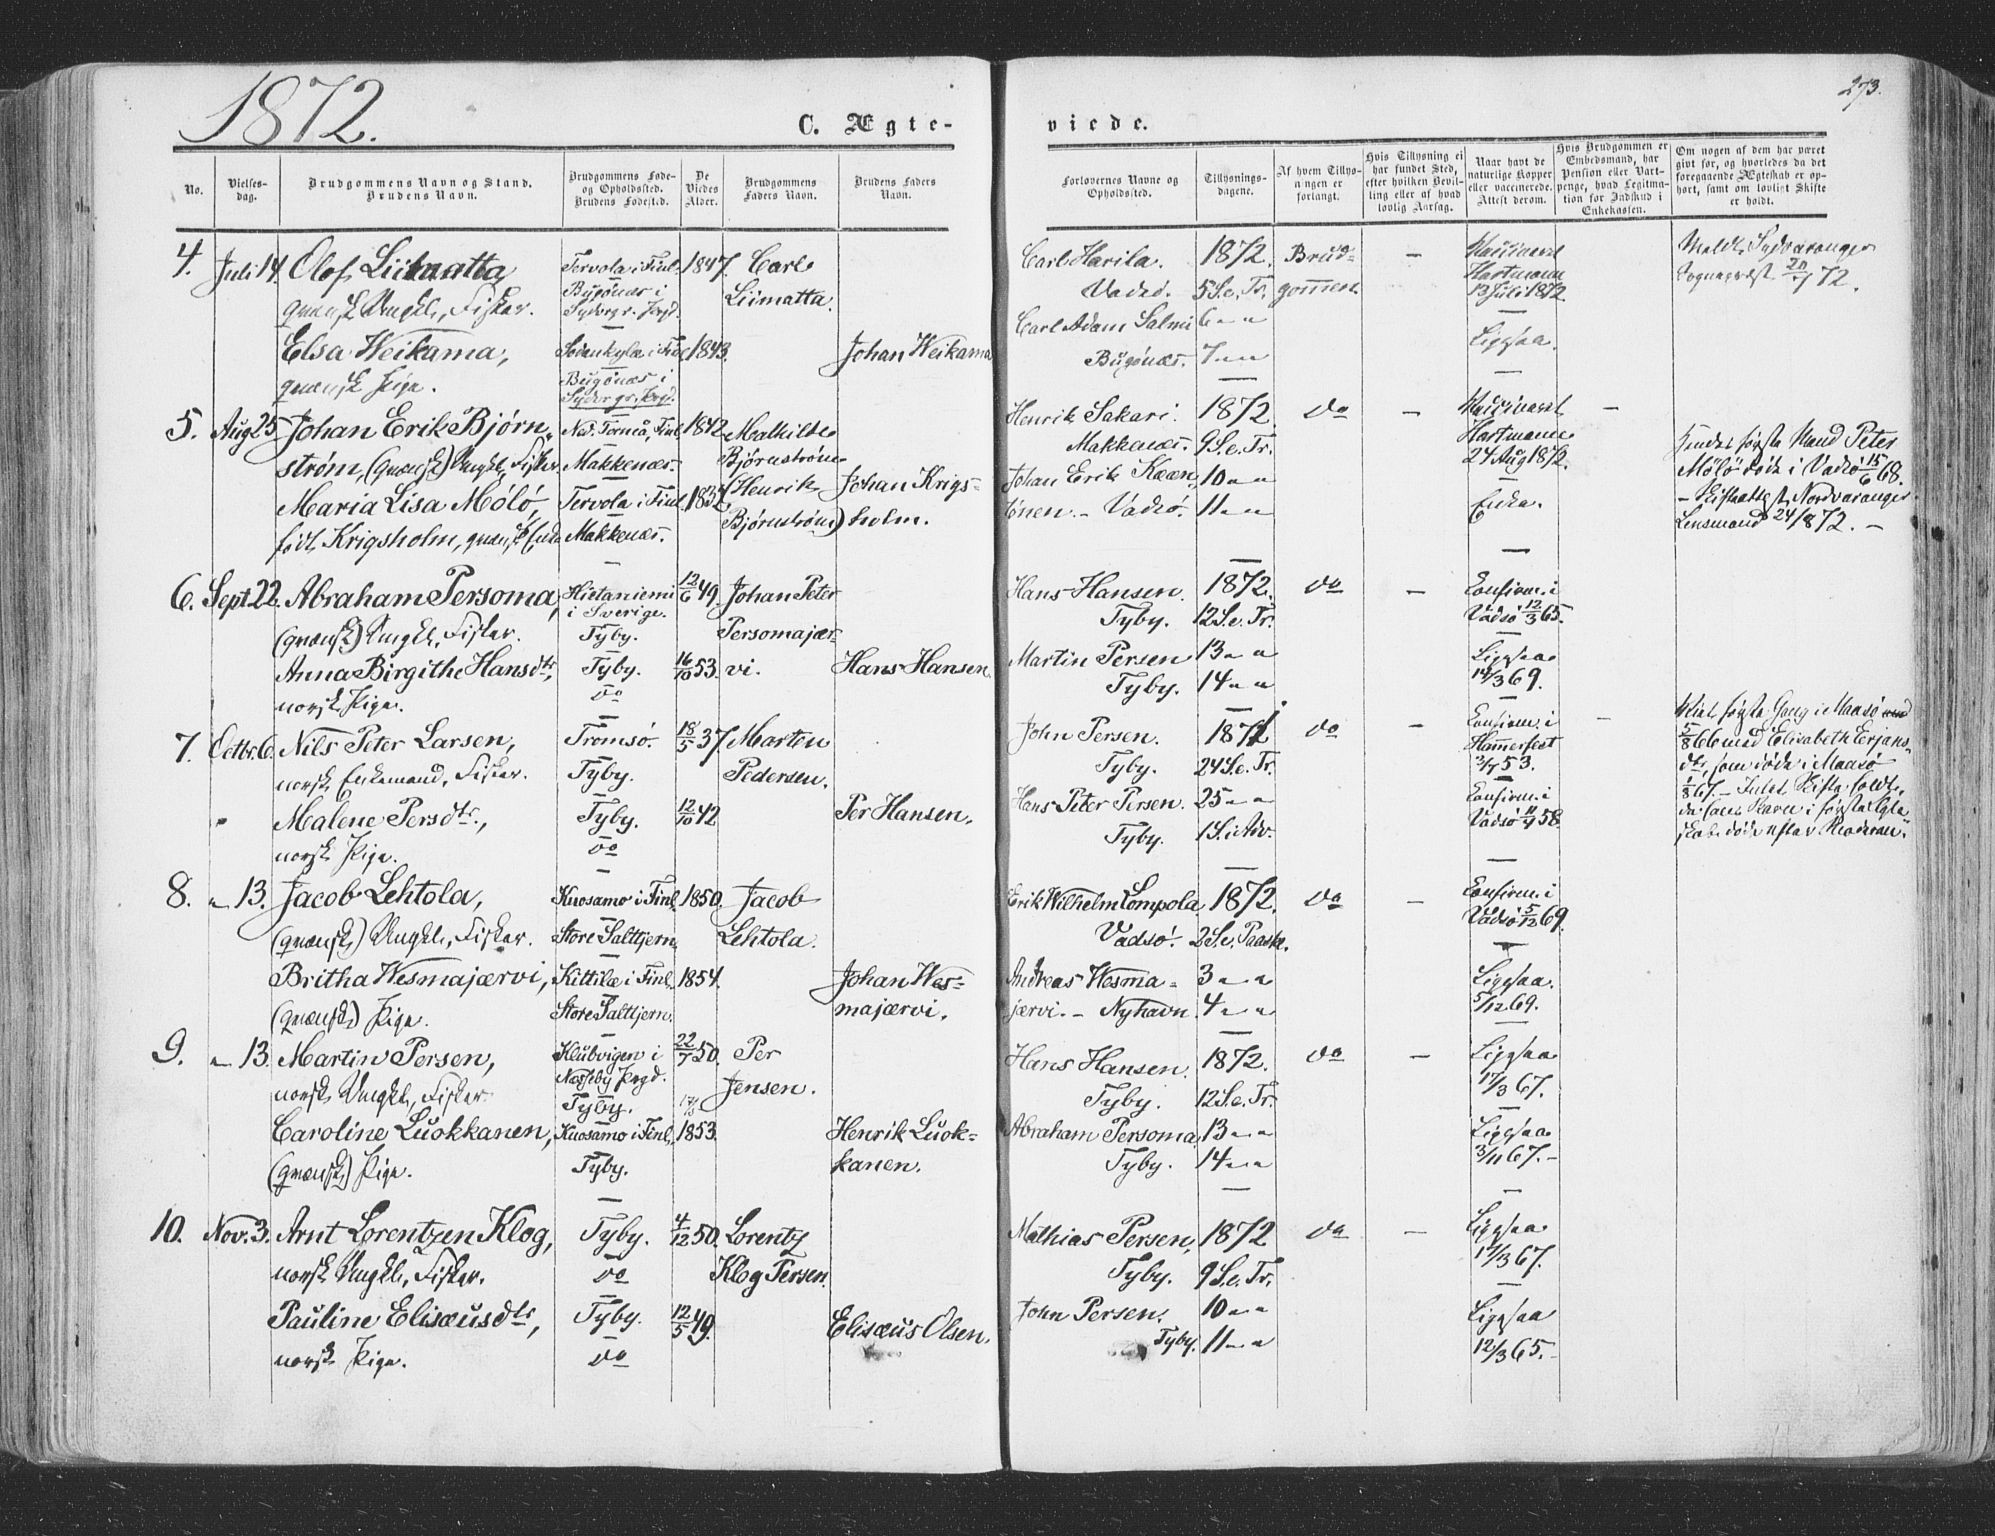 1872.
273.
C. Ægte-
viede.
No.
Vielses-
dag.
Brudgommens Navn og Stand.
Brudens Navn.
Brudgommens Føde-
og Opholdssted.
Brudens Fødested.
De
Viedes
Alder.
Brudgommens
Faders Navn.
Brudens Faders
Navn.
Forlovernes Navne og
Opholdssted.
Tillysnings-
dagene.
Af hvem Tillys-
ningen er
forlangt.
Hvis Tillysning ei
har fundet Sted,
efter hvilken Bevil-
ling eller af hvad
lovlig Aarsag.
Naar havt de
naturlige Kopper
eller vaccinerede.
Attest derom.
Hvis Brudgommen er
Embedsmand, har
Pension eller Vart-
penge, hvad Legitima-
tion for Indskud i
Enkekassen.
Om nogen af dem har været
givt før, og hvorledes da det
foregaaende Ægteskab er op-
hørt, samt om lovligt Skifte
er holdt.
4. Juli 14. Olof Liimatta, Tervola i Finl. 1847. Carl
qvænsk Ungkl., Fisker. Bugønæs i Liimatta.
Sydvgr. Prgd.
Elsa Weikama, Sodankylæ i Finl. 1843. Johan Weikama
qvænsk Pige. Bugønæs i
Sydvgr. Prgd.
Carl Harila. 1872. Brud- — Vaccineret
Vadsø. 5 S. e. Tr. gommen. Hartmann
13 Juli 1872.
Carl Adam Salmi 6 " "
Bugønæs. 7 " " Ligesaa.
Meldt Sydvaranger
Sogneprest 20/7 72.
5. Aug 25 Johan Erik Bjørn- Ned. Torneå, Finl. 1842. Mathilde
strøm, (qvænsk) Ungkl., Fisker Makkenæs. Bjørnstrøm
Maria Lisa Mölö, Tervola i Finl. 1832. (Henrik Johan Krigs-
født Krigsholm, qvænsk Enke Makkenæs. Bjørnstrøm) holm.
Henrik Sakari. 1872. do — Vaccineret —
Makkenæs. 9 S. e. Tr. Hartmann
24 Aug 1872.
Johan Erik Kæen, 10 " "
Enen. - Vadsø. 11 " " Enke.
Hendes første Mand Peter
Mölö døde i Vadsø 15/6 68.
- Skifteattest Nordvaranger
Lensmand 24/8 72. -
6. Sept 22. Abraham Persoma, Hietaniemi 12/6 49. Johan Peter
i Sverige. Persomajær-
(qvænsk) Ungkl., Fisker. Tyby.
Anna Birgithe Hansdtr, Tyby. 16/10 53. vi. Hans Hansen.
norsk Pige. do
Hans Hansen. 1872. do — Confirm. i
Tyby. 12 S. e. Tr. Vadsø 12/3 65.
Martin Persen 13 " " Ligesaa
Tyby. 14 " " 14/3 69.
7. Octbr. 6. Nils Peter Larsen, Tromsø. 18/5 37 Martin
norsk Enkemand, Fisker. Tyby. Pedersen.
" Malene Persdtr., Tyby. 12/10 42 Per Hansen.
norsk Pige. do
John Persen. 1871 do — Confirm. i —
Tyby. 24 S. e. Tr. Hammerfest
3/7 53.
Hans Peter Persen. 25 " " Confirm. i
Tyby. 1 S. i Adv. Vadsø 11/4 58.
Viet første Gang i Maasø
5/8 66 med Elisabeth Erjans-
dtr., som døde i Maasø
1/8 67. - Intet Skifte holdt,
da hans Barn i første Ægte-
skab døde efter Moderen.
8. " 13. Jacob Lehtola, Kuosamo i Finl. 1850. Jacob
(qvænsk) Ungkl., Fisker. Store Saltjern. Lehtola.
Britha Wesmajærvi, Kittilæ i Finl. 1854. Johan Wes-
(qvænsk) Pige. Store Saltjern. majærvi.
Erik Wilhelm Lompola 1872. do — Confirm. i
Vadsø. 2 S. e. Paaske. Vadsø 5/12 69.
Andreas Wesma- 3 " " Ligesaa.
jærvi. - Nyhavn. 4 " " 5/12 69.
9. " 13. Martin Persen, Klubvigen i 22/7 50. Per
norsk Ungkl., Fisker Næsseby Prgd. Jensen.
Tyby.
Caroline Luokkanen, Kuosamo i Finl. 1853. Henrik Luok-
(qvænsk) Pige. Tyby. kanen.
Hans Hansen. 1872. do — Ligesaa
Tyby. 12 S. e. Tr. 17/3 67.
Abraham Persoma, 13 " " Ligesaa
Tyby. 14 " " 3/11 67. -
10. Nov. 3. Arnt Lorentzen Klog, Tyby. 4/12 50. Lorentz
norsk Ungkl., Fisker. do Klog Persen.
Pauline Elisæusdtr, Tyby. 12/5 49. Elisæus Olsen.
norsk Pige. do
Mathias Persen, 1872 do — Ligesaa
Tyby. 9 S. e. Tr. 17/3 67.
John Persen. 10 " " Ligesaa
Tyby. 11 " " 12/3 65. -